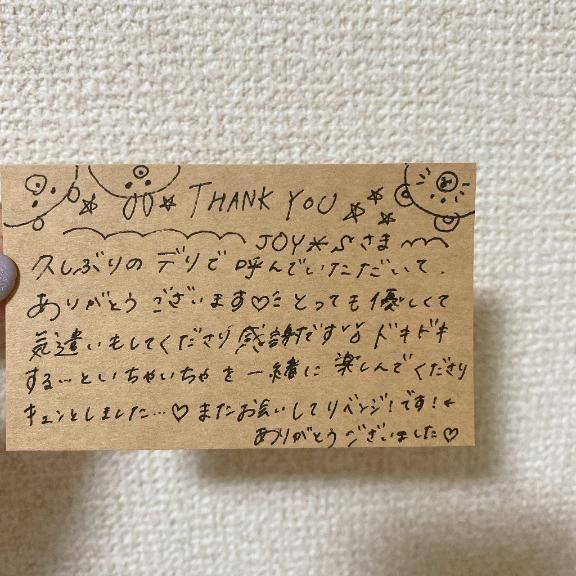 THANK YOU
JOY*Sさま
久しぶりの デリで 呼んでいただいて、
ありがとう ございます♡ とっても優しくて
気遣いもしてくださり 感謝です ドキドキ
する…といちゃいちゃを 一緒に 楽しんでくださり
キュンとしました…♡ またお会いしてリベンジ!です!←
ありがとうございました♡